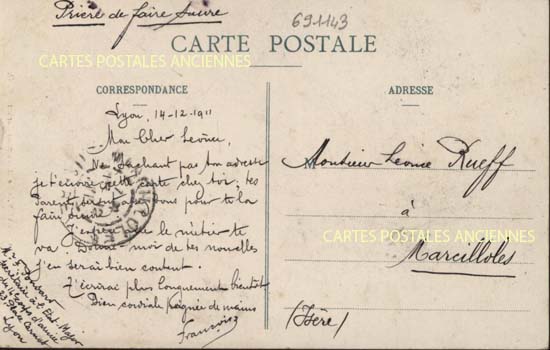 Prière de faire suivre
691143
CARTE POSTALE
CARTES POSTALES ANCIENNES
CORRESPONDANCE
ADRESSE
Lyon, 14-12-1911
Mon Cher Léonce,
Ne sachant pas ton adresse
je t'envoie cette carte chez toi; tes
parents seront bons pour te la
faire suivre.
J'espère que le métier te
va. Donne moi de tes nouvelles
j'en serai bien content.
J'écrirai plus longuement bientôt
Bien cordiale poignée de mains
François
Monsieur Léonce Rueff
à
CARTES POSTALES ANCIENNES
Marcilloles
(Isère)
Mr F.
secrétaire à l'Etat-Major
du 14e Corps d'armée
33 Place Carnot
Lyon